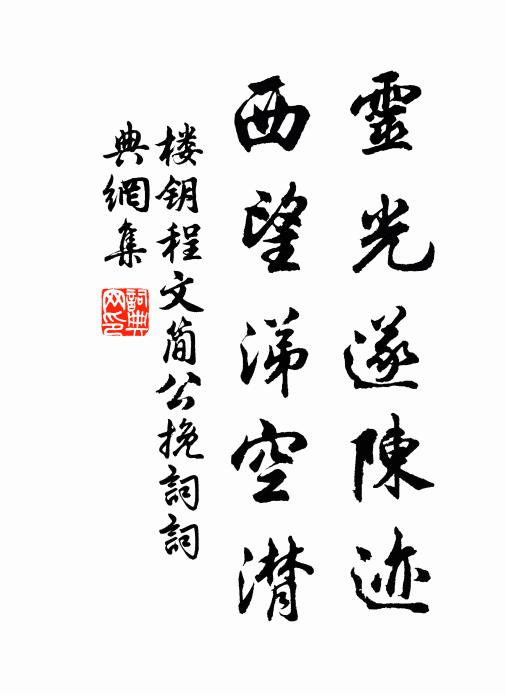 靈光遂陳迹
西望涕空潸
楼钥程文简公挽詞詞
典網集
詞典
网印